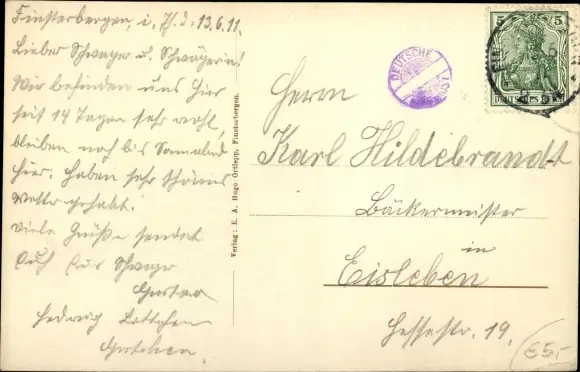 Finsterbergen, i. Th. d. 13.6.11.
Lieber Schwager u. Schwägerin!
Wir befinden uns hier
seit 14 Tagen sehr wohl,
bleiben noch bis Sonnabend
hier. Haben sehr schönes
Wetter gehabt!
Viele Grüße sendet
Euch Euer Schwager
Gustav
Hedwig Lottchen
Gretchen.
Verlag: E. A. Hugo Ortlepp, Finsterbergen.
DEUTSCHE
5 5
DEUTSCHES REICH
Herrn
Karl Hildebrandt
Bäckermeister
in
Eisleben
Hessestr. 19.
€5,-